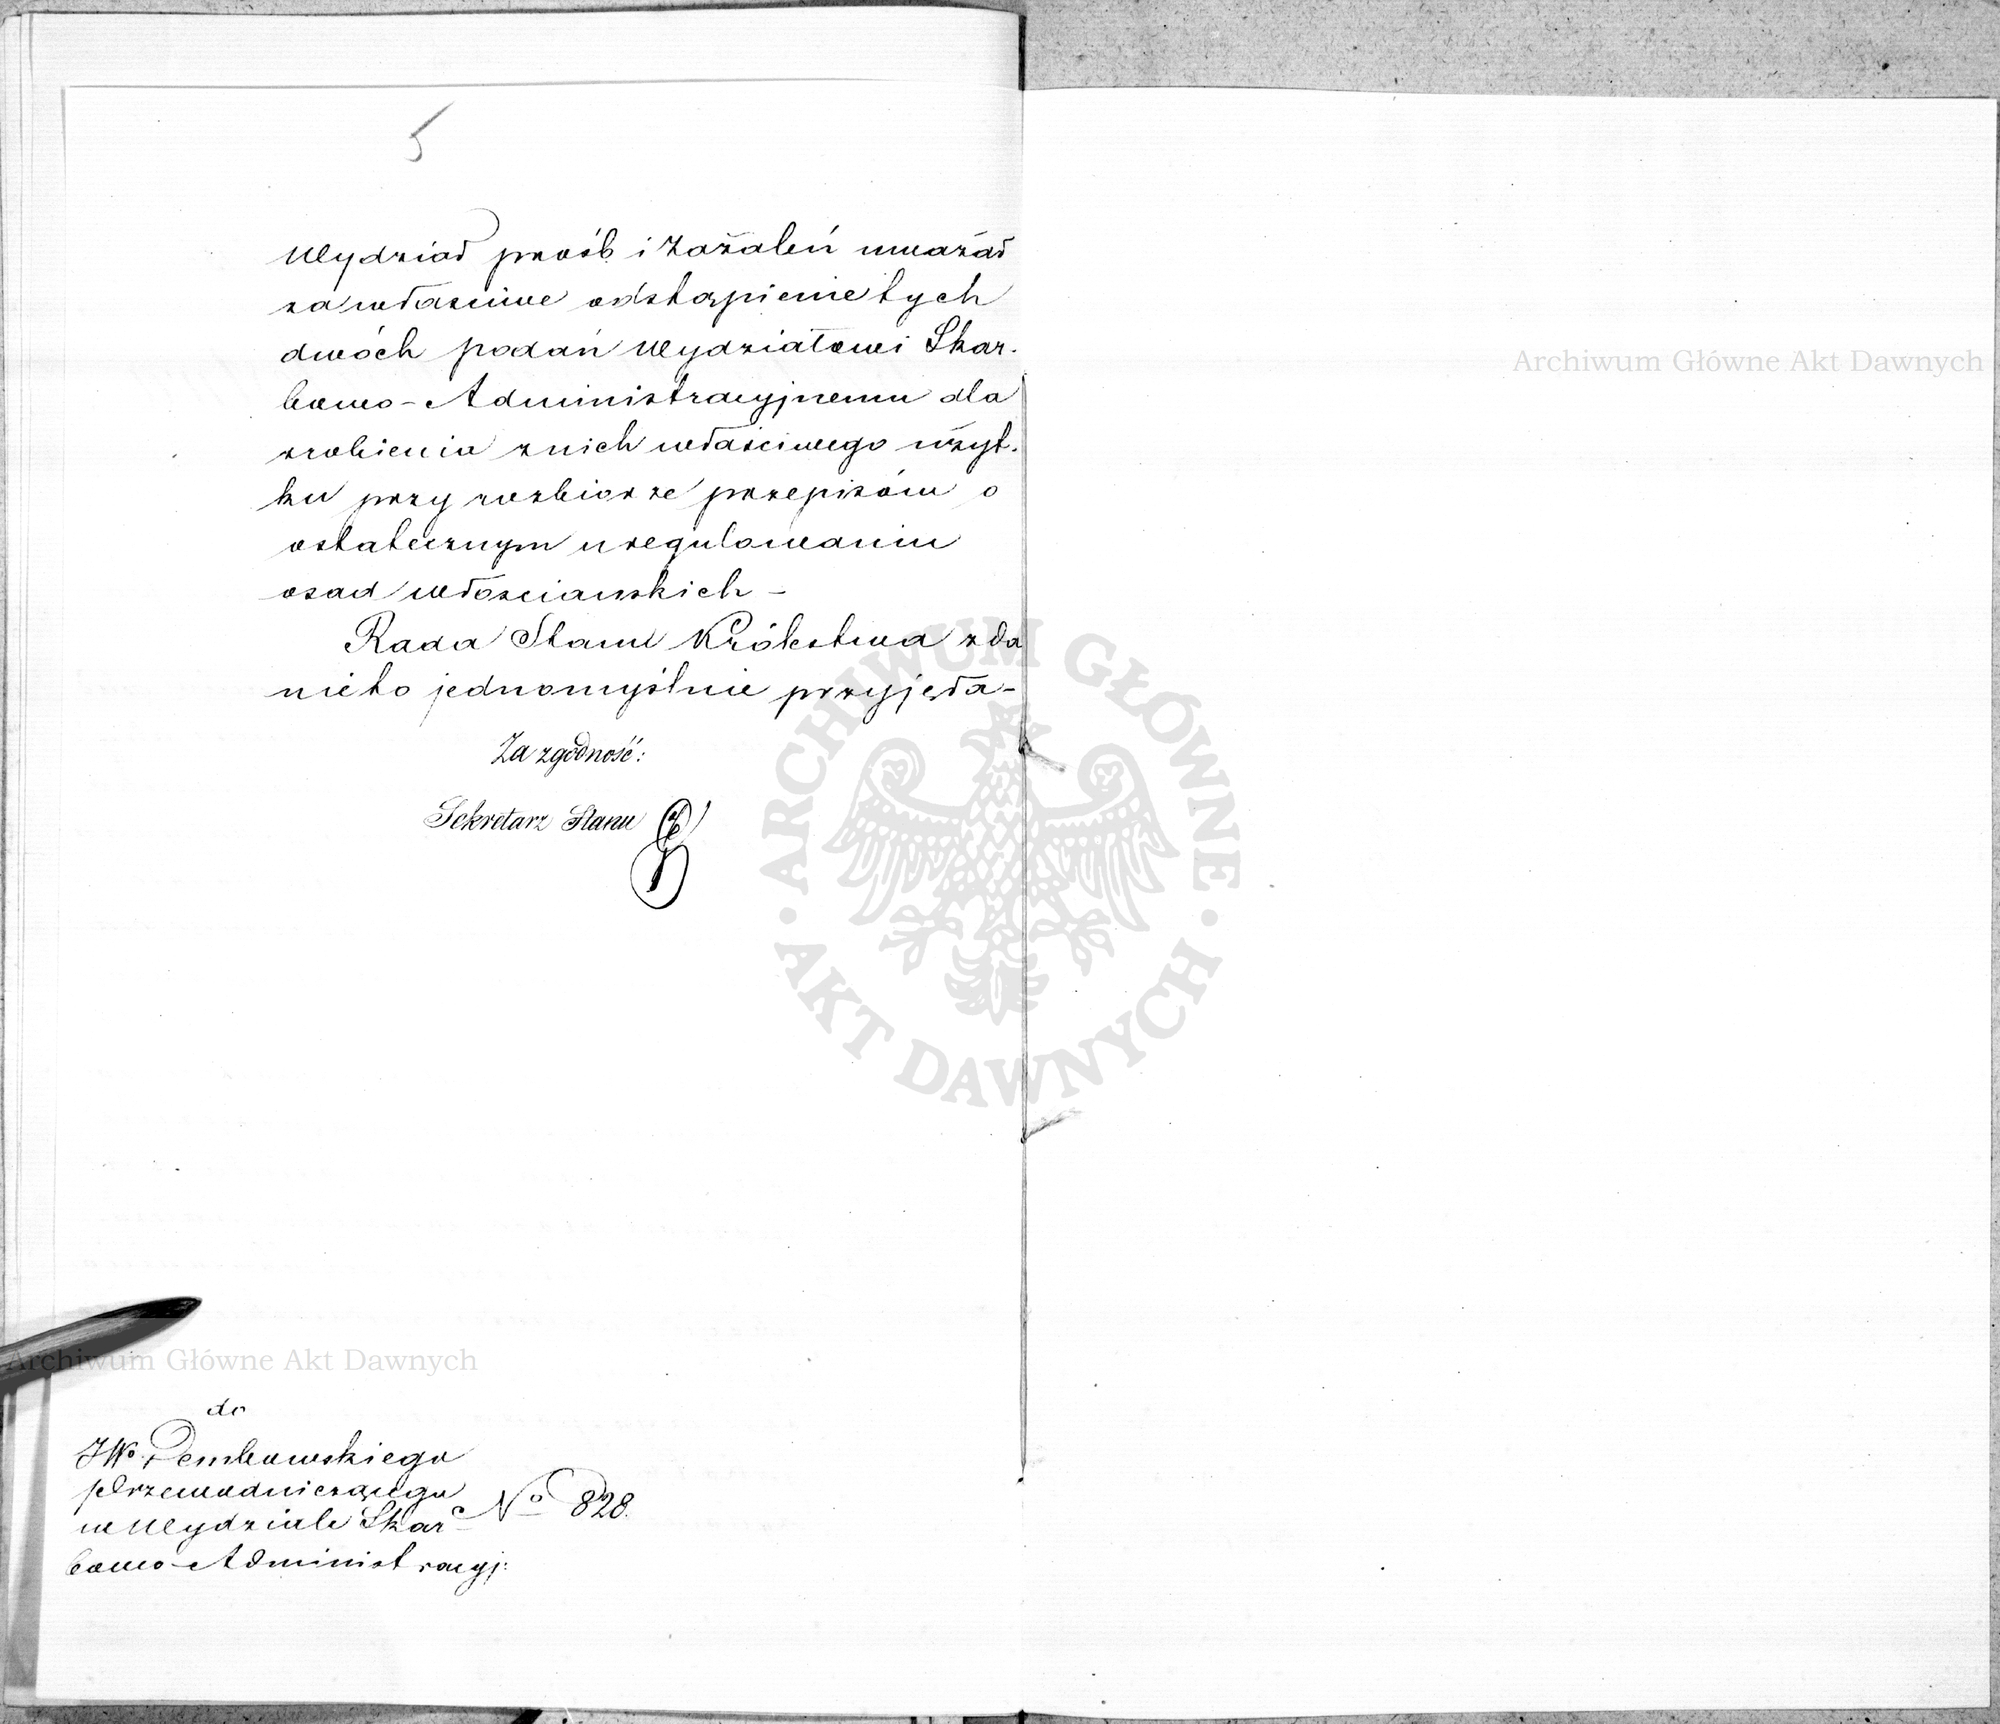 5
Wydział próśb i Zażaleń uważał
za właściwe odstąpienie tych
dwóch podań Wydziałowi Skar-
bowo-Administracyjnemu dla
zrobienia z nich właściwego użyt-
ku przy rozbiorze przepisów o
ostatecznym uregulowaniu
osad włościańskich –
Rada Stanu Królestwa zda
nie to jednomyślnie przyjęła –
Za zgodność:
Sekretarz Stanu
do
JWo Dembowskiego
Przewodniczącego
w Wydziale Skar
bowo-Administracyj:
No 828.
Archiwum Główne Akt Dawnych
Archiwum Główne Akt Dawnych
ARCHIWUM GŁÓWNE · AKT DAWNYCH ·